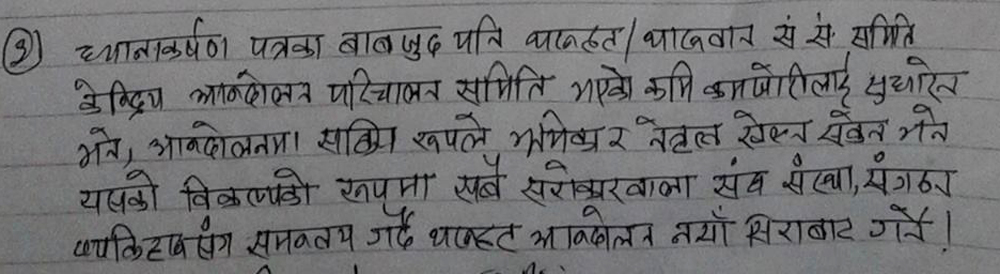 ③ ध्यानाकर्षण पत्रका बावजुद पनि थारुहट/थारुवान सं सं. समिति
केन्द्रिय आन्दोलन परिचालन समिति भएको कमि कमजोरीलाई सुधारेन
भने, आन्दोलनमा सक्रिय रुपले भूमिका र नेतृत्व खेल्न सकेन भने
यसको विकल्पको रुपमा सबै सरोकारवाला संघ संस्था, संगठन
व्यक्तित्वसंग समन्वय गर्दै थारुहट आन्दोलन नयाँ सिराबाट गर्ने!